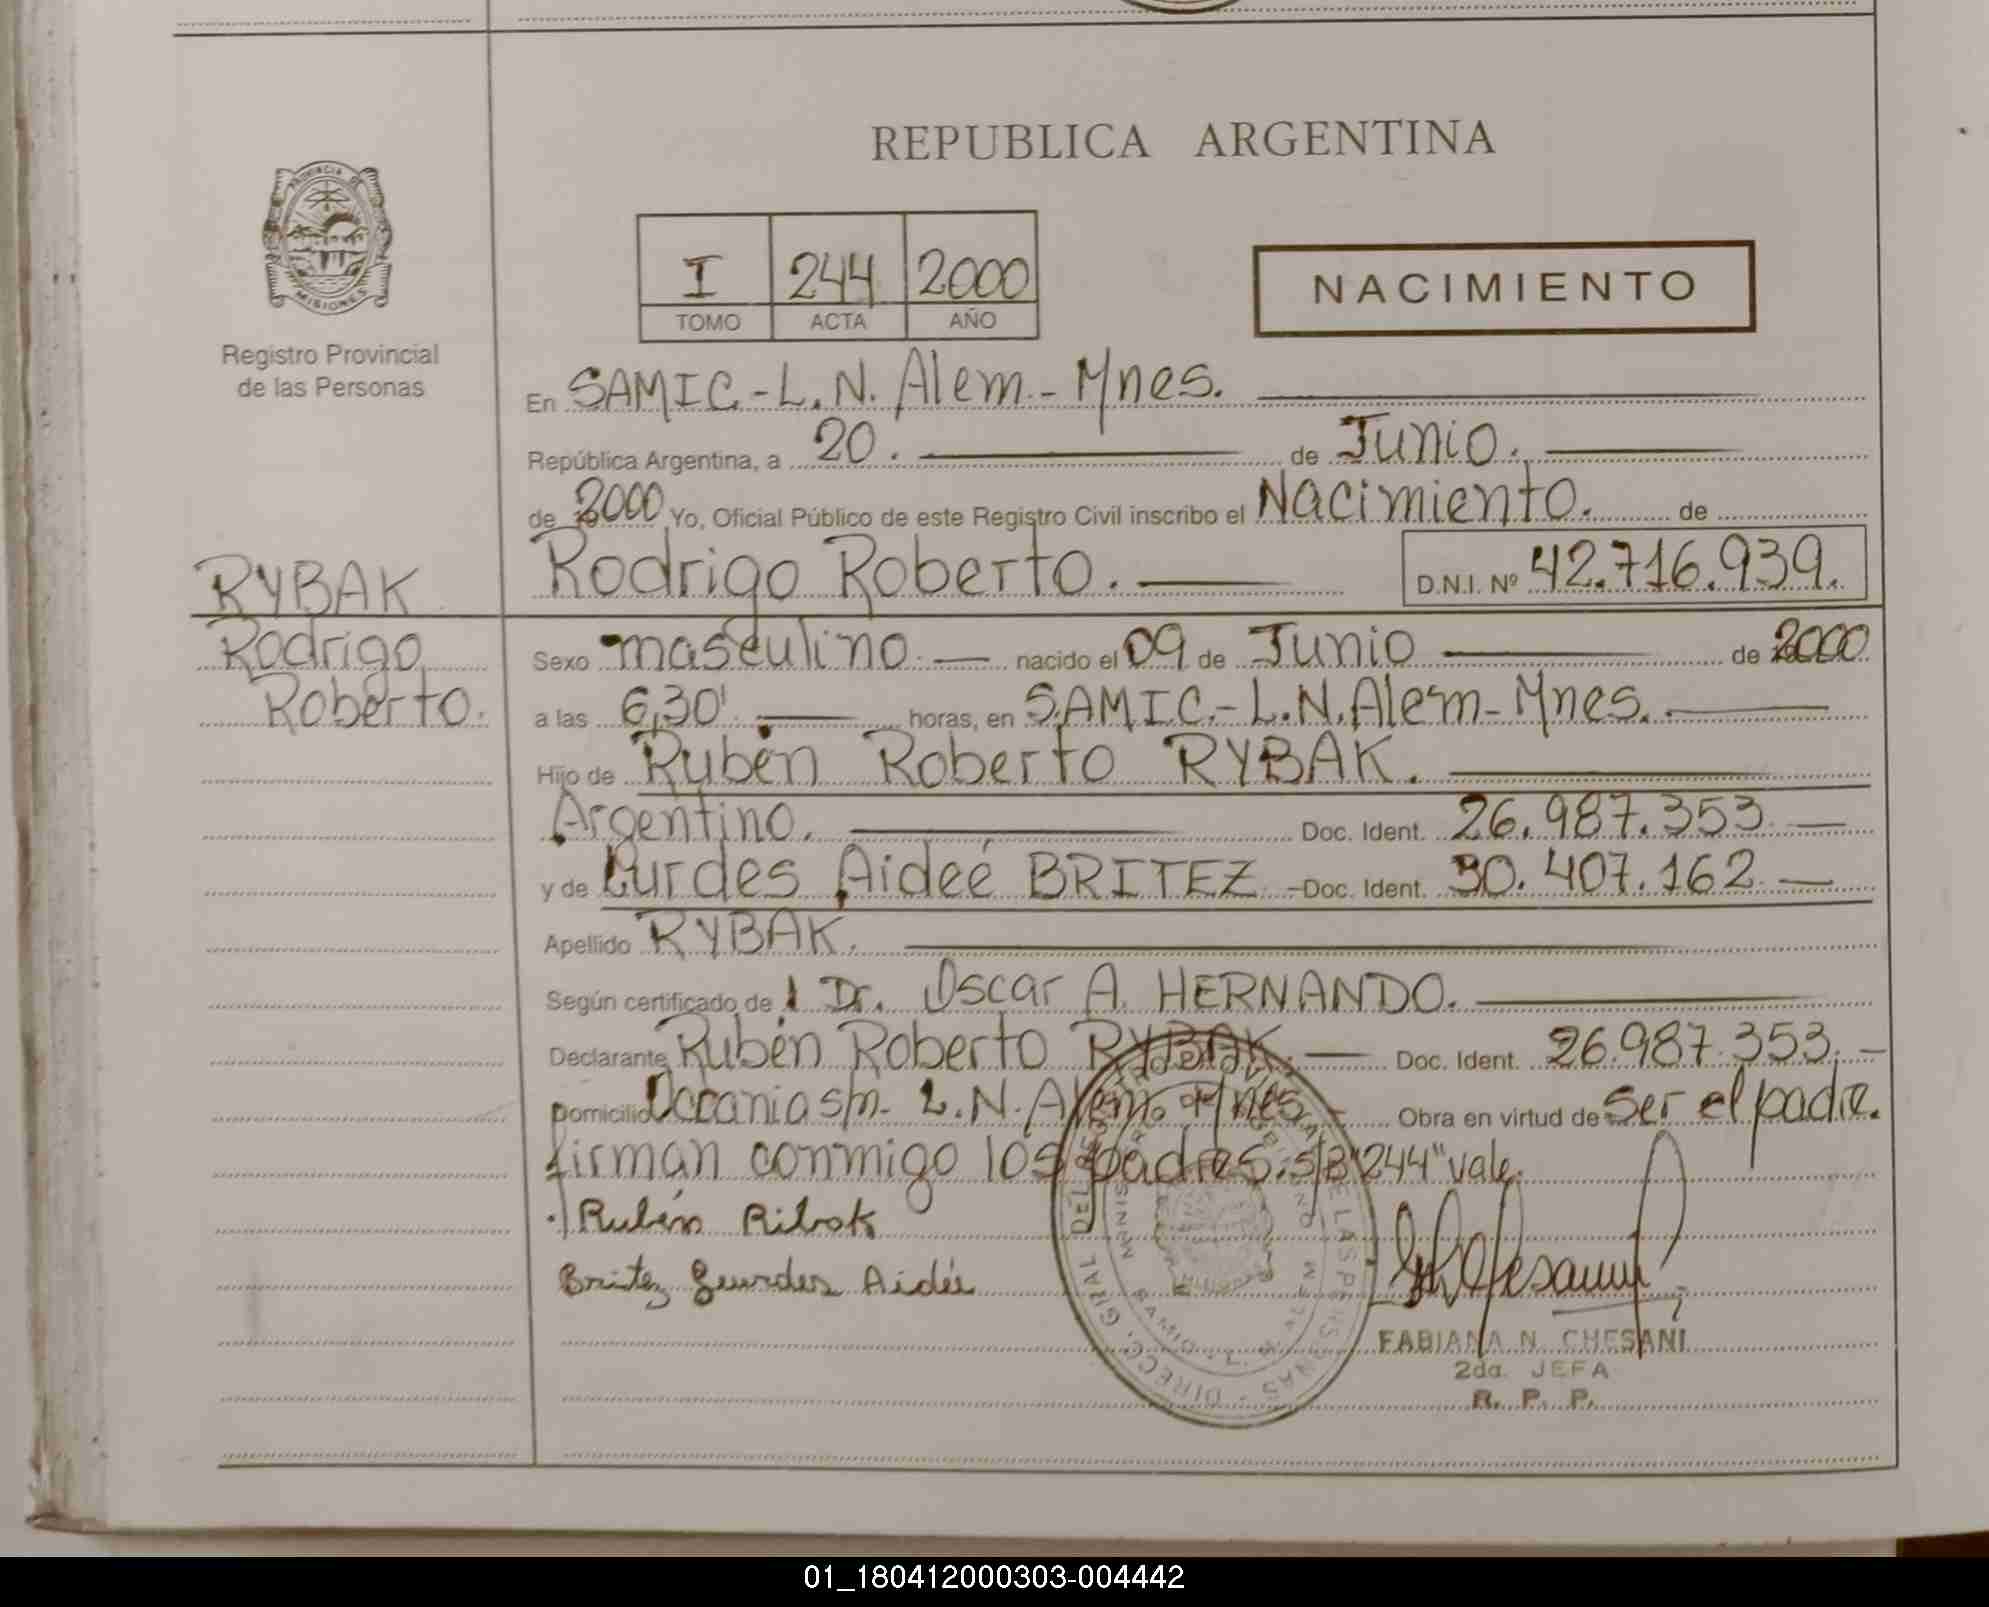 REPUBLICA ARGENTINA
PROVINCIA DE
MISIONES
Registro Provincial
de las Personas
I 244 2000
TOMO ACTA AÑO
NACIMIENTO
En SAMIC.-L.N. Alem.-Mnes.
República Argentina, a 20. de Junio.
de 2000 Yo, Oficial Público de este Registro Civil inscribo el Nacimiento. de
Rodrigo Roberto. D.N.I. Nº 42.716.939.
RYBAK
Rodrigo
Roberto.
Sexo masculino. nacido el 09 de Junio de 2000
a las 6,30' horas, en SAMIC.-L.N.Alem-Mnes.
Hijo de Rubén Roberto RYBAK.
Argentino. Doc. Ident. 26.987.353
y de Lurdes Aideé BRITEZ Doc. Ident. 30.407.162
Apellido RYBAK.
Según certificado de Dr. Oscar A. HERNANDO.
Declarante Rubén Roberto RYBAK. Doc. Ident. 26.987.353.
Domicilio Oceania s/n. L.N. Alem. Mnes. Obra en virtud de Ser el padre.
firman conmigo los padres. s/B "244" vale.
Rubén Ribak
Britez Lourdes Aidée
FABIANA N. CHESANI
2da. JEFA
R. P. P.
01_180412000303-004442